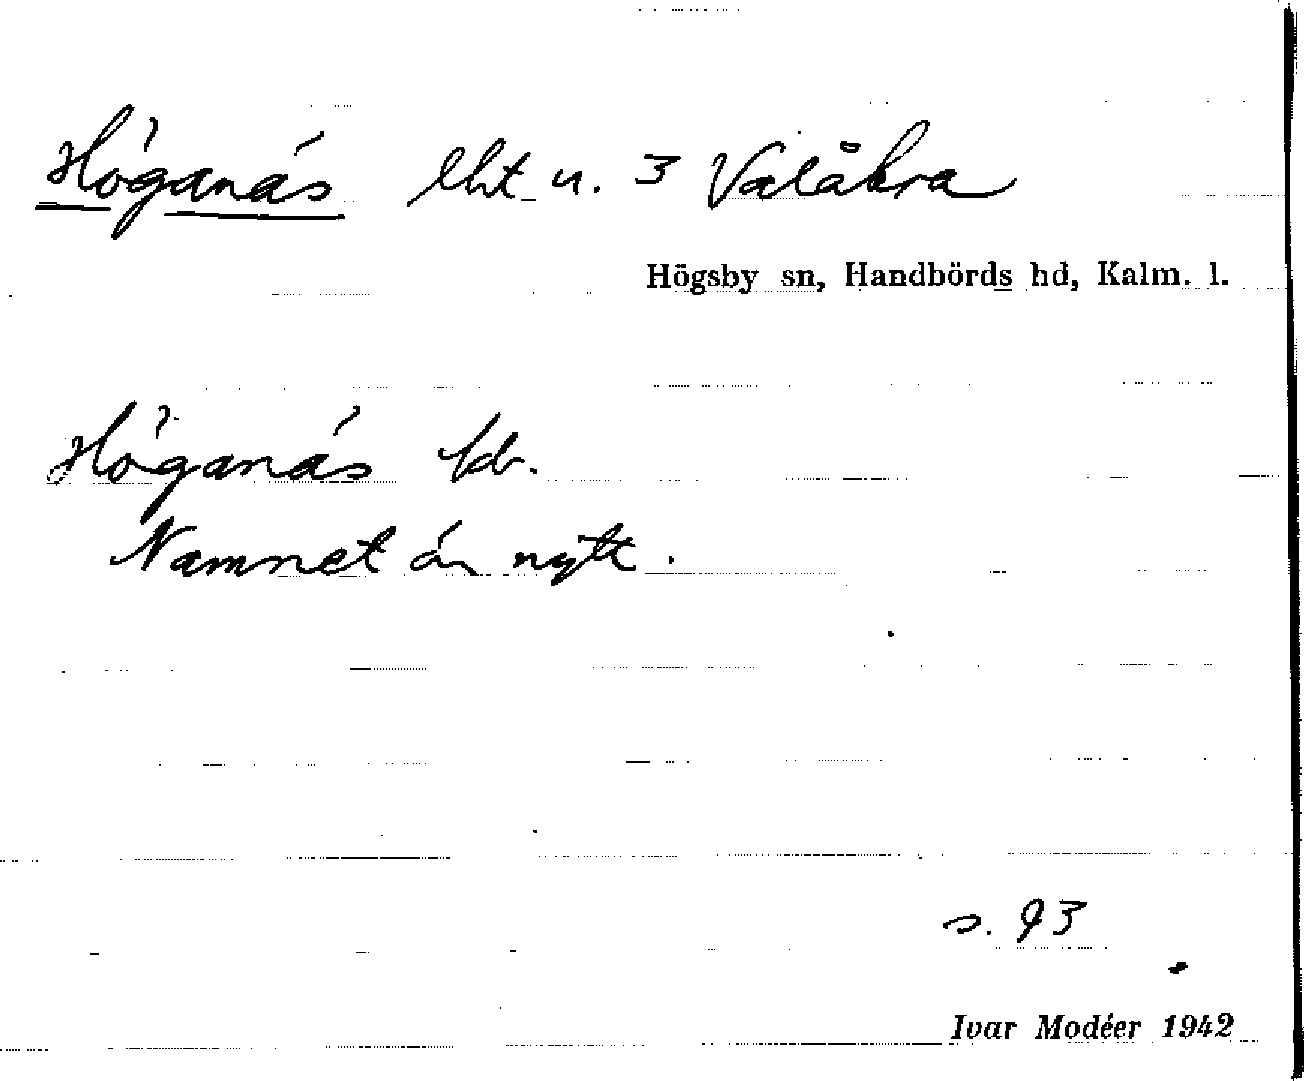 Höganäs lht u. 3 Valåkra
Högsby sn, Handbörds hd, Kalm. l.
Höganäs
Namnet är nytt.
s. 93
Ivar Modéer 1942